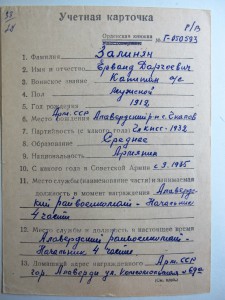 Учетная карточка
Р/В
Орденская книжка
№ Г-050583
1. Фамилия Залинян
2. Имя и отчество Ерванд
3. Воинское звание Капитан а/с
4. Пол Мужской
5. Год рождения 1912
Арм. ССР
6. Место рождения Алавердский р-н с.
7. Партийность (с какого года) КПСС-1932
8. Образование Среднее
9. Национальность Армянин
10. С какого года в Советской Армии с 9. 1935
11. Место службы (наименование части) и занимаемая
должность в момент награждения Алаверд-
ский райвоенкомат - Начальник
4 части
12. Место службы и должность в настоящее время
Алавердский райвоенкомат -
Начальник 4 части.
13. Домашний адрес награжденного Арм. ССР
гор. Алаверди ул. Комсомольская